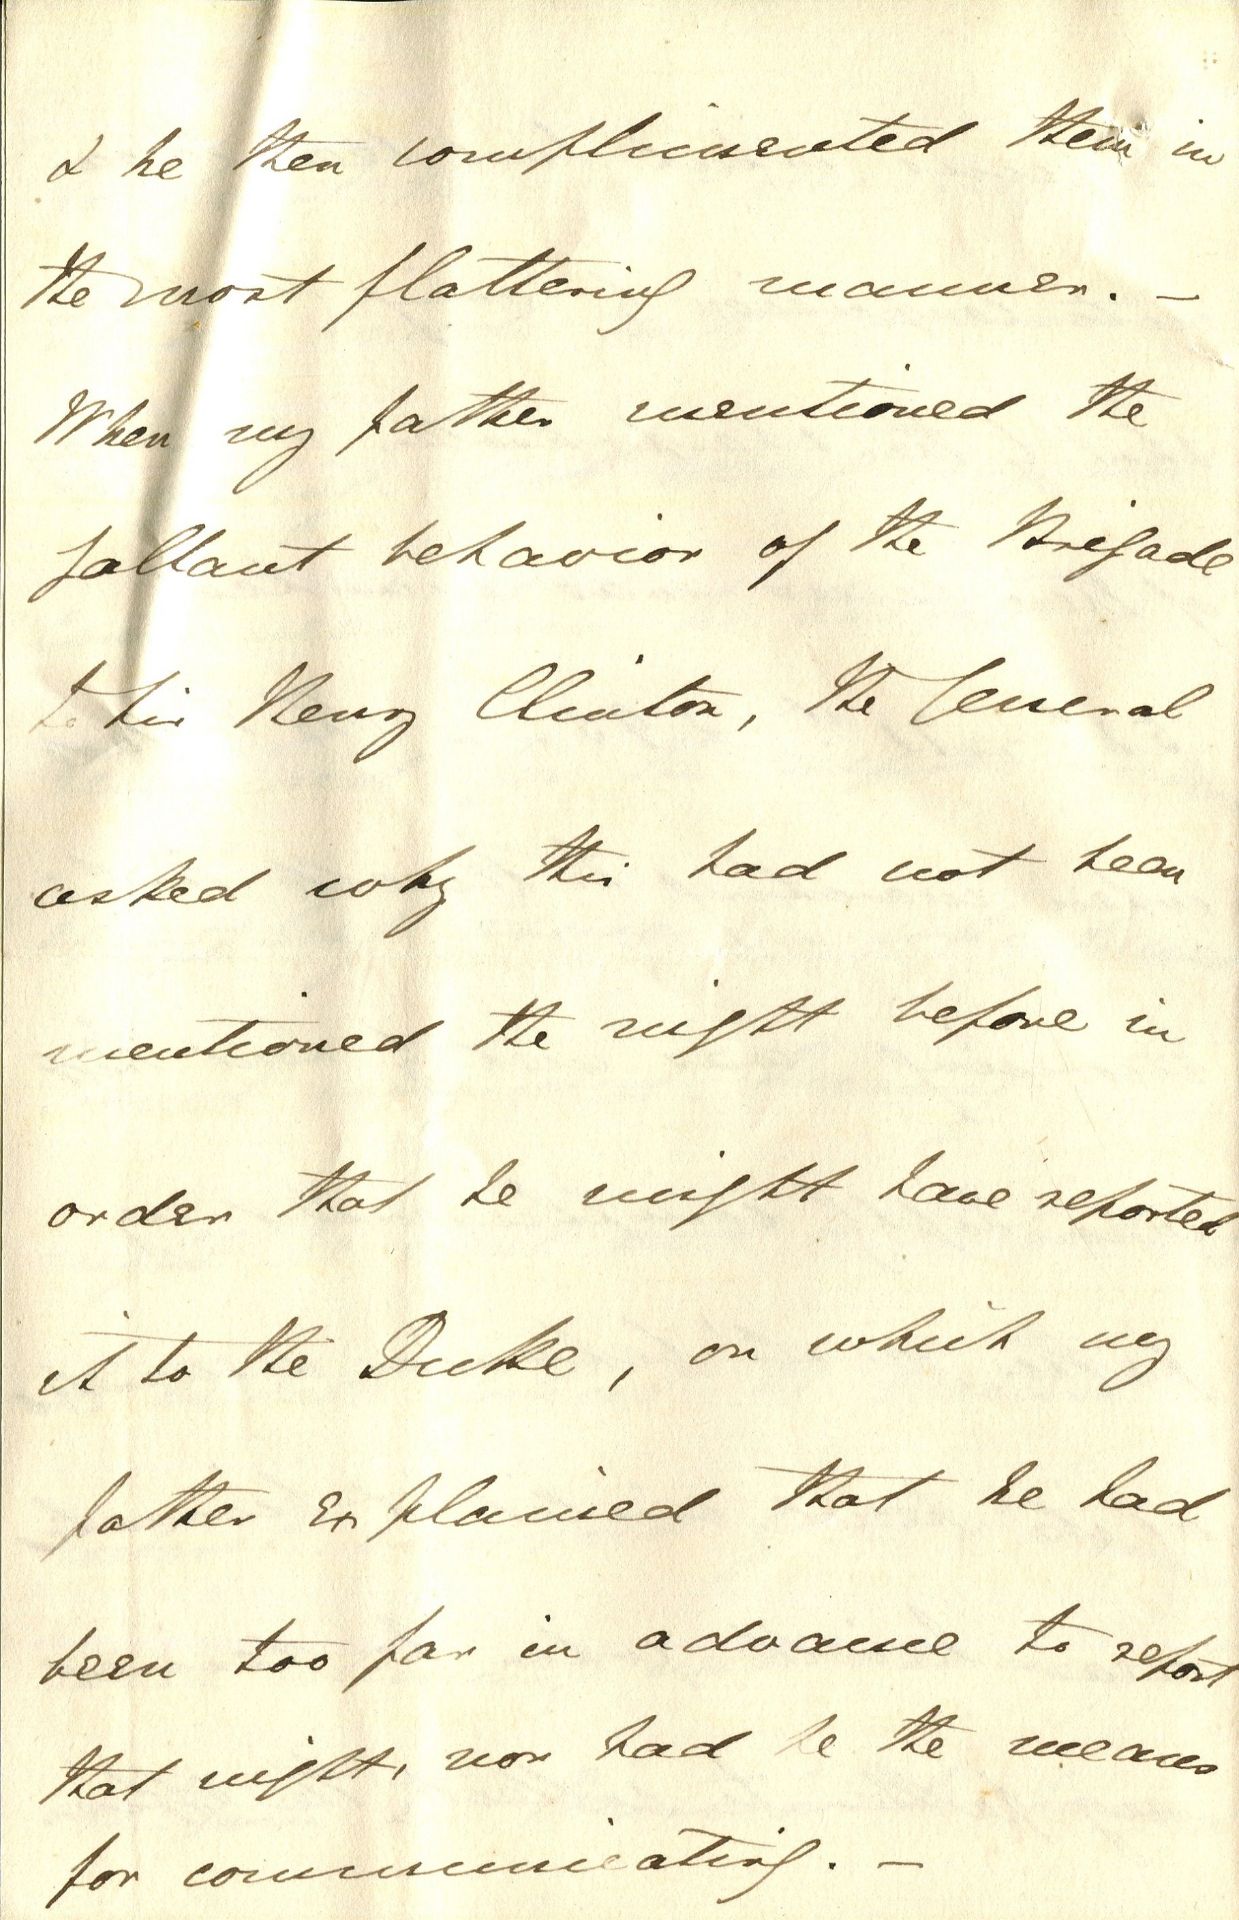 & he then complimented them in
the most flattering manner. –
When my father mentioned the
gallant behavior of the Brigade
to Sir Henry Clinton, the General
asked why this had not been
mentioned the night before in
order that he might have reported
it to the Duke, on which my
father explained that he had
been too far in advance to report
that night, nor had he the means
for communicating. –